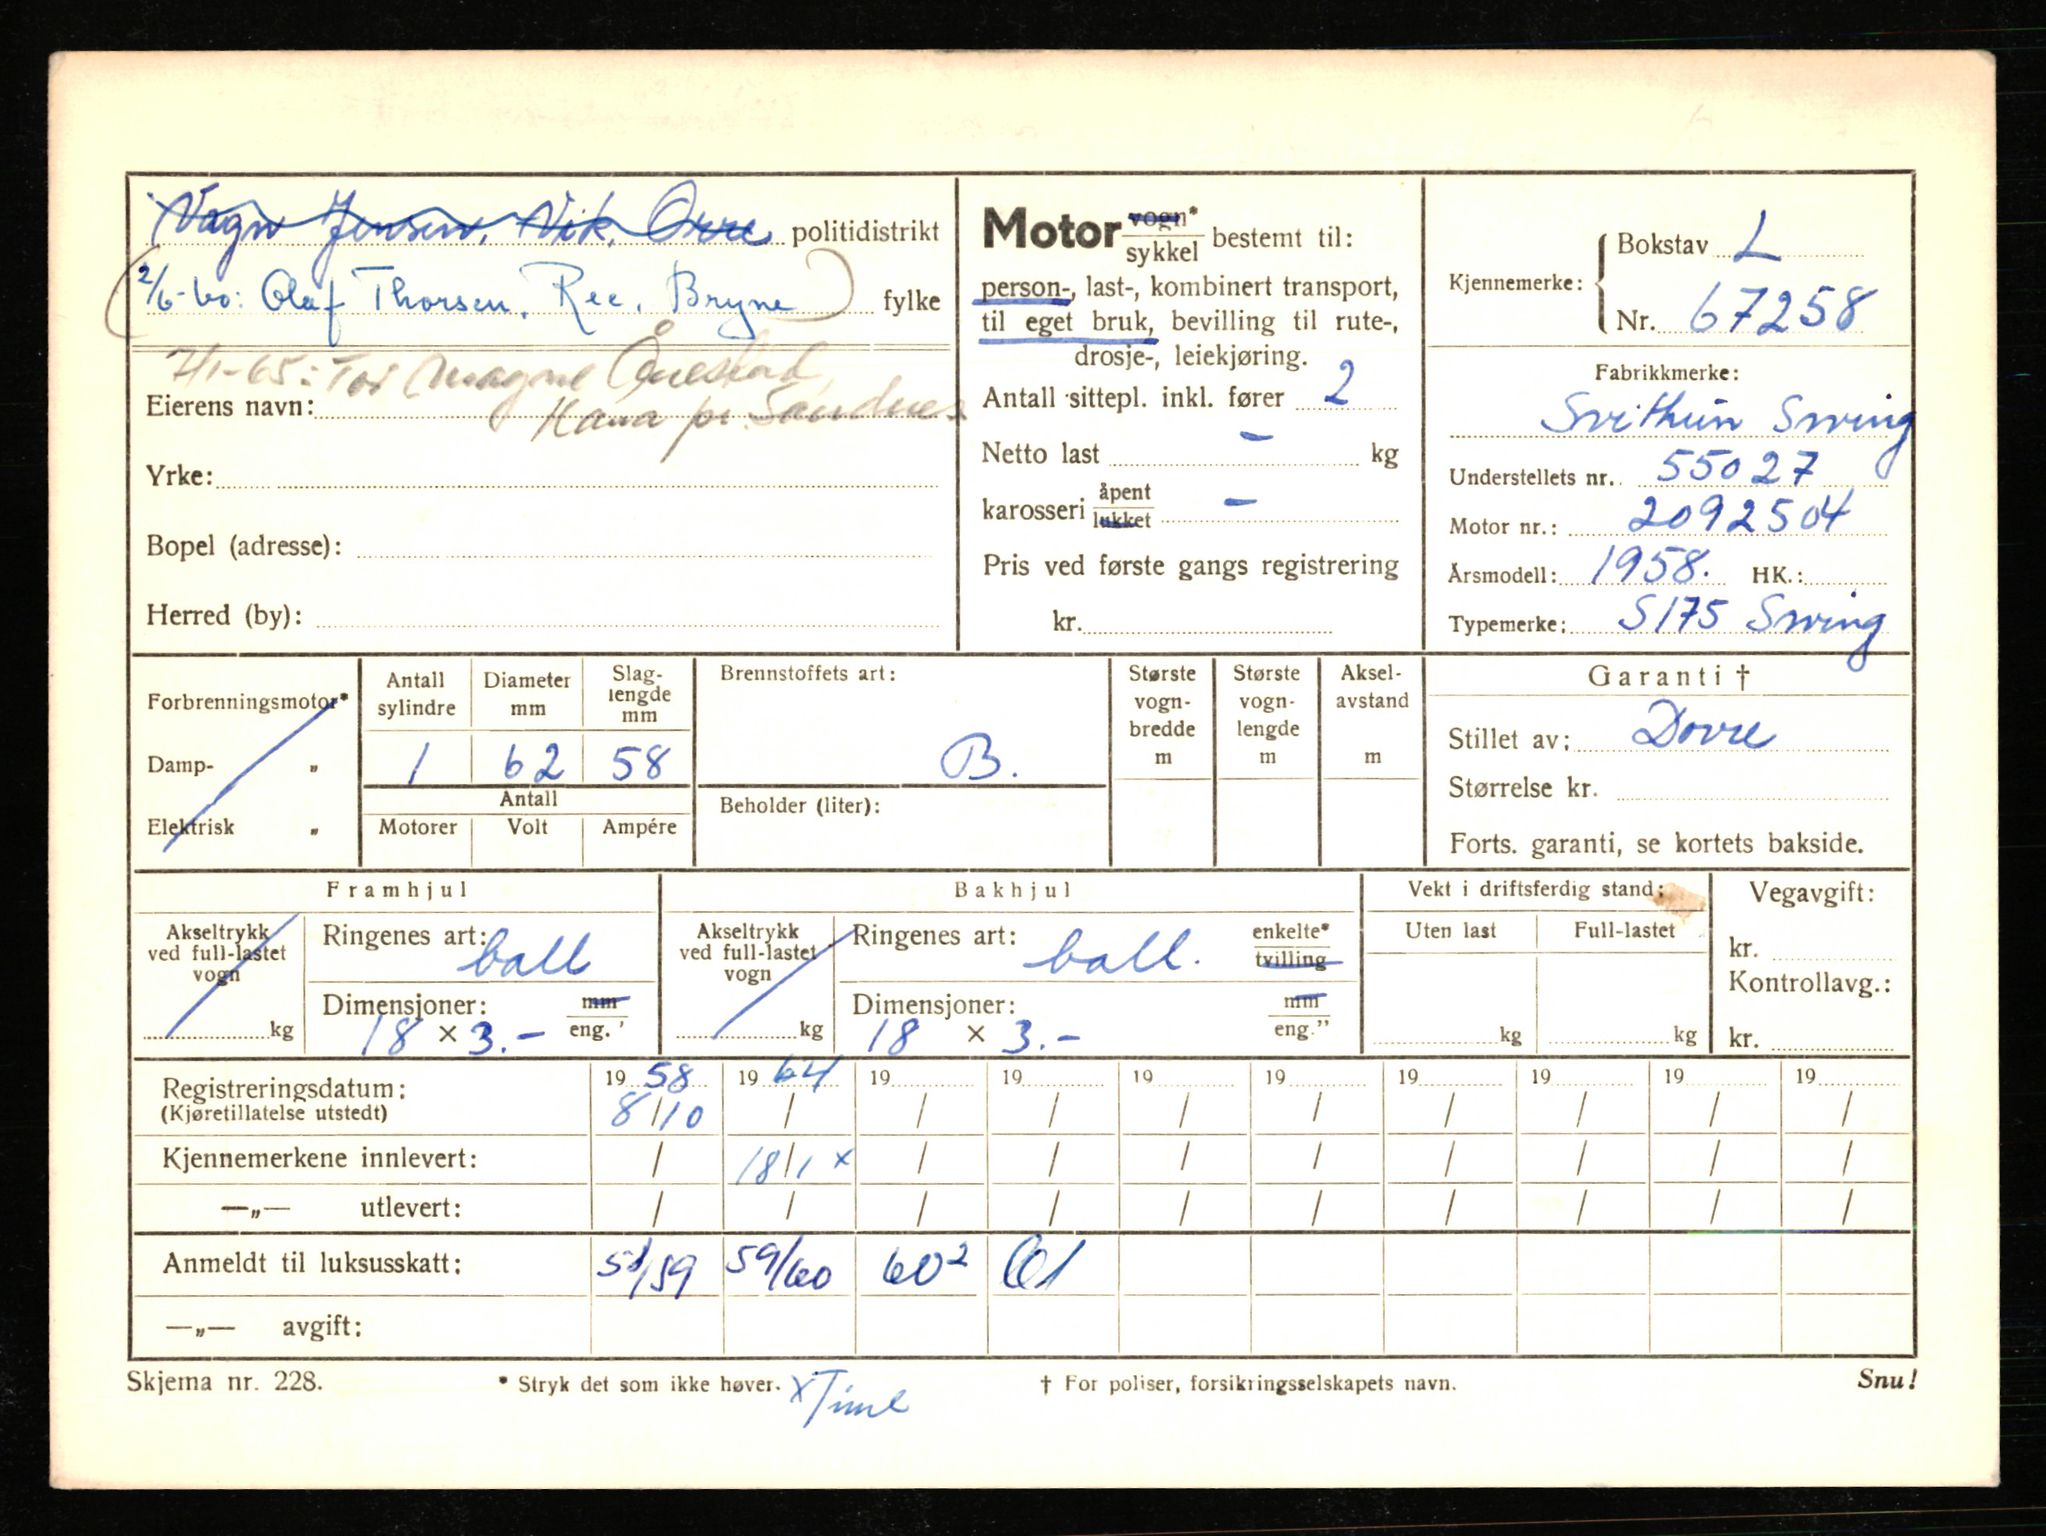 Vagn Jensen, Vik, Orre politidistrikt
2/6-60: Olaf Thorsen, Ree, Bryne fylke
7/1-65: Tor Magne
Eierens navn: Hana pr. Sandnes
Yrke:
Bopel (adresse):
Herred (by):
Motor vogn* / sykkel bestemt til:
person-, last-, kombinert transport,
til eget bruk, bevilling til rute-,
drosje-, leiekjøring.
Antall sittepl. inkl. fører 2
Netto last - kg
karosseri åpent / lukket -
Pris ved første gangs registrering
kr.
Kjennemerke: Bokstav L
Nr. 67258
Fabrikkmerke:
Svithun Swing
Understellets nr. 55027
Motor nr.: 2092504
Årsmodell: 1958. HK.:
Typemerke: S175 Swing
Forbrenningsmotor*
Damp- „
Elektrisk „
Antall sylindre Diameter mm Slaglengde mm
1 62 58
Antall
Motorer Volt Ampére
Brennstoffets art:
B.
Beholder (liter):
Største vognbredde m Største vognlengde m Akselavstand m
Garanti †
Stillet av: Dovre
Størrelse kr.
Forts. garanti, se kortets bakside.
Framhjul
Akseltrykk ved full-lastet vogn kg
Ringenes art: ball
Dimensjoner: mm / eng. "
18 × 3.-
Bakhjul
Akseltrykk ved full-lastet vogn kg
Ringenes art: ball. enkelte* / tvilling
Dimensjoner: mm / eng."
18 × 3.-
Vekt i driftsferdig stand:
Uten last Full-lastet
kg kg
Vegavgift:
kr.
Kontrollavg.:
kr.
Registreringsdatum: 19 58 19 64 19 19 19 19 19 19 19 19
(Kjøretillatelse utstedt) 8/10 / / / / / / / / /
Kjennemerkene innlevert: / 18/1 x / / / / / / / /
—„— utlevert: / / / / / / / / / /
Anmeldt til luksusskatt: 58/59 59/60 60² 61
—„— avgift:
Skjema nr. 228. * Stryk det som ikke høver. x Time † For poliser, forsikringsselskapets navn. Snu!